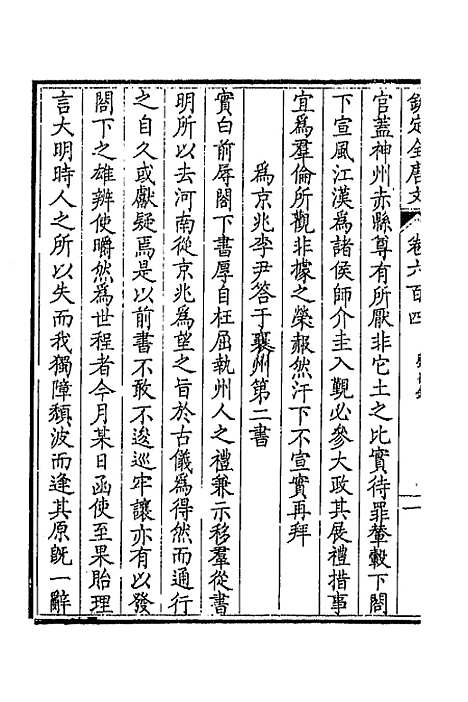 欽定全唐文 卷六百四 一
官蓋神州赤縣尊有所厭非它土之比實待罪輦轂下閤
下宣風江漢為諸侯師介圭入覲必參大政其展禮措事
宜為羣倫所觀非據之榮赧然汗下不宣實再拜
為京兆李尹答于襄州第二書
實白前辱閤下書厚自枉屈執州人之禮兼示移羣從書
明所以去河南從京兆為望之旨於古儀為得然而通行
之自久或獻疑焉是以前書不敢不逡巡牢讓亦有以發
閤下之雄辨使皭然為世程者今月某日函使至果貽理
言大明時人之所以失而我獨障頹波而逢其原旣一辭